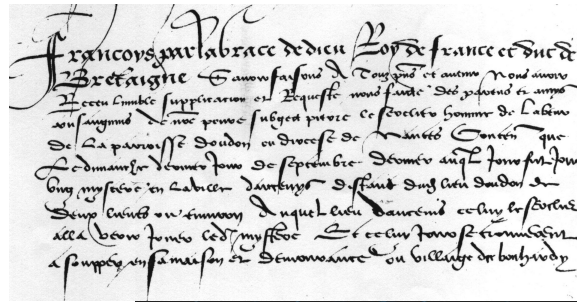 Francoys par la grace de dieu Roy de france et duc de
Bretaigne Savoir faisons A Tous pns et avenir Nous avoir
Receu lumble supplication et Requeste nous faicte des parens et amys
consanguins de nre povre subgect pierre le homme de labeur
de La parroisse doudon ou diocese de Nantes Contenant que
Le dimanche dernier Jour de septembre dernier auql Jour fut Joue
ung mystere en La ville dancenys distant dud lieu doudon de
deux lieues ou environ Auquel lieu dancenis celuy
alla veoir Jouer led mystere Et celuy Jour se trouverent
a soupper en sa maison et demourance ou village de bonhardy